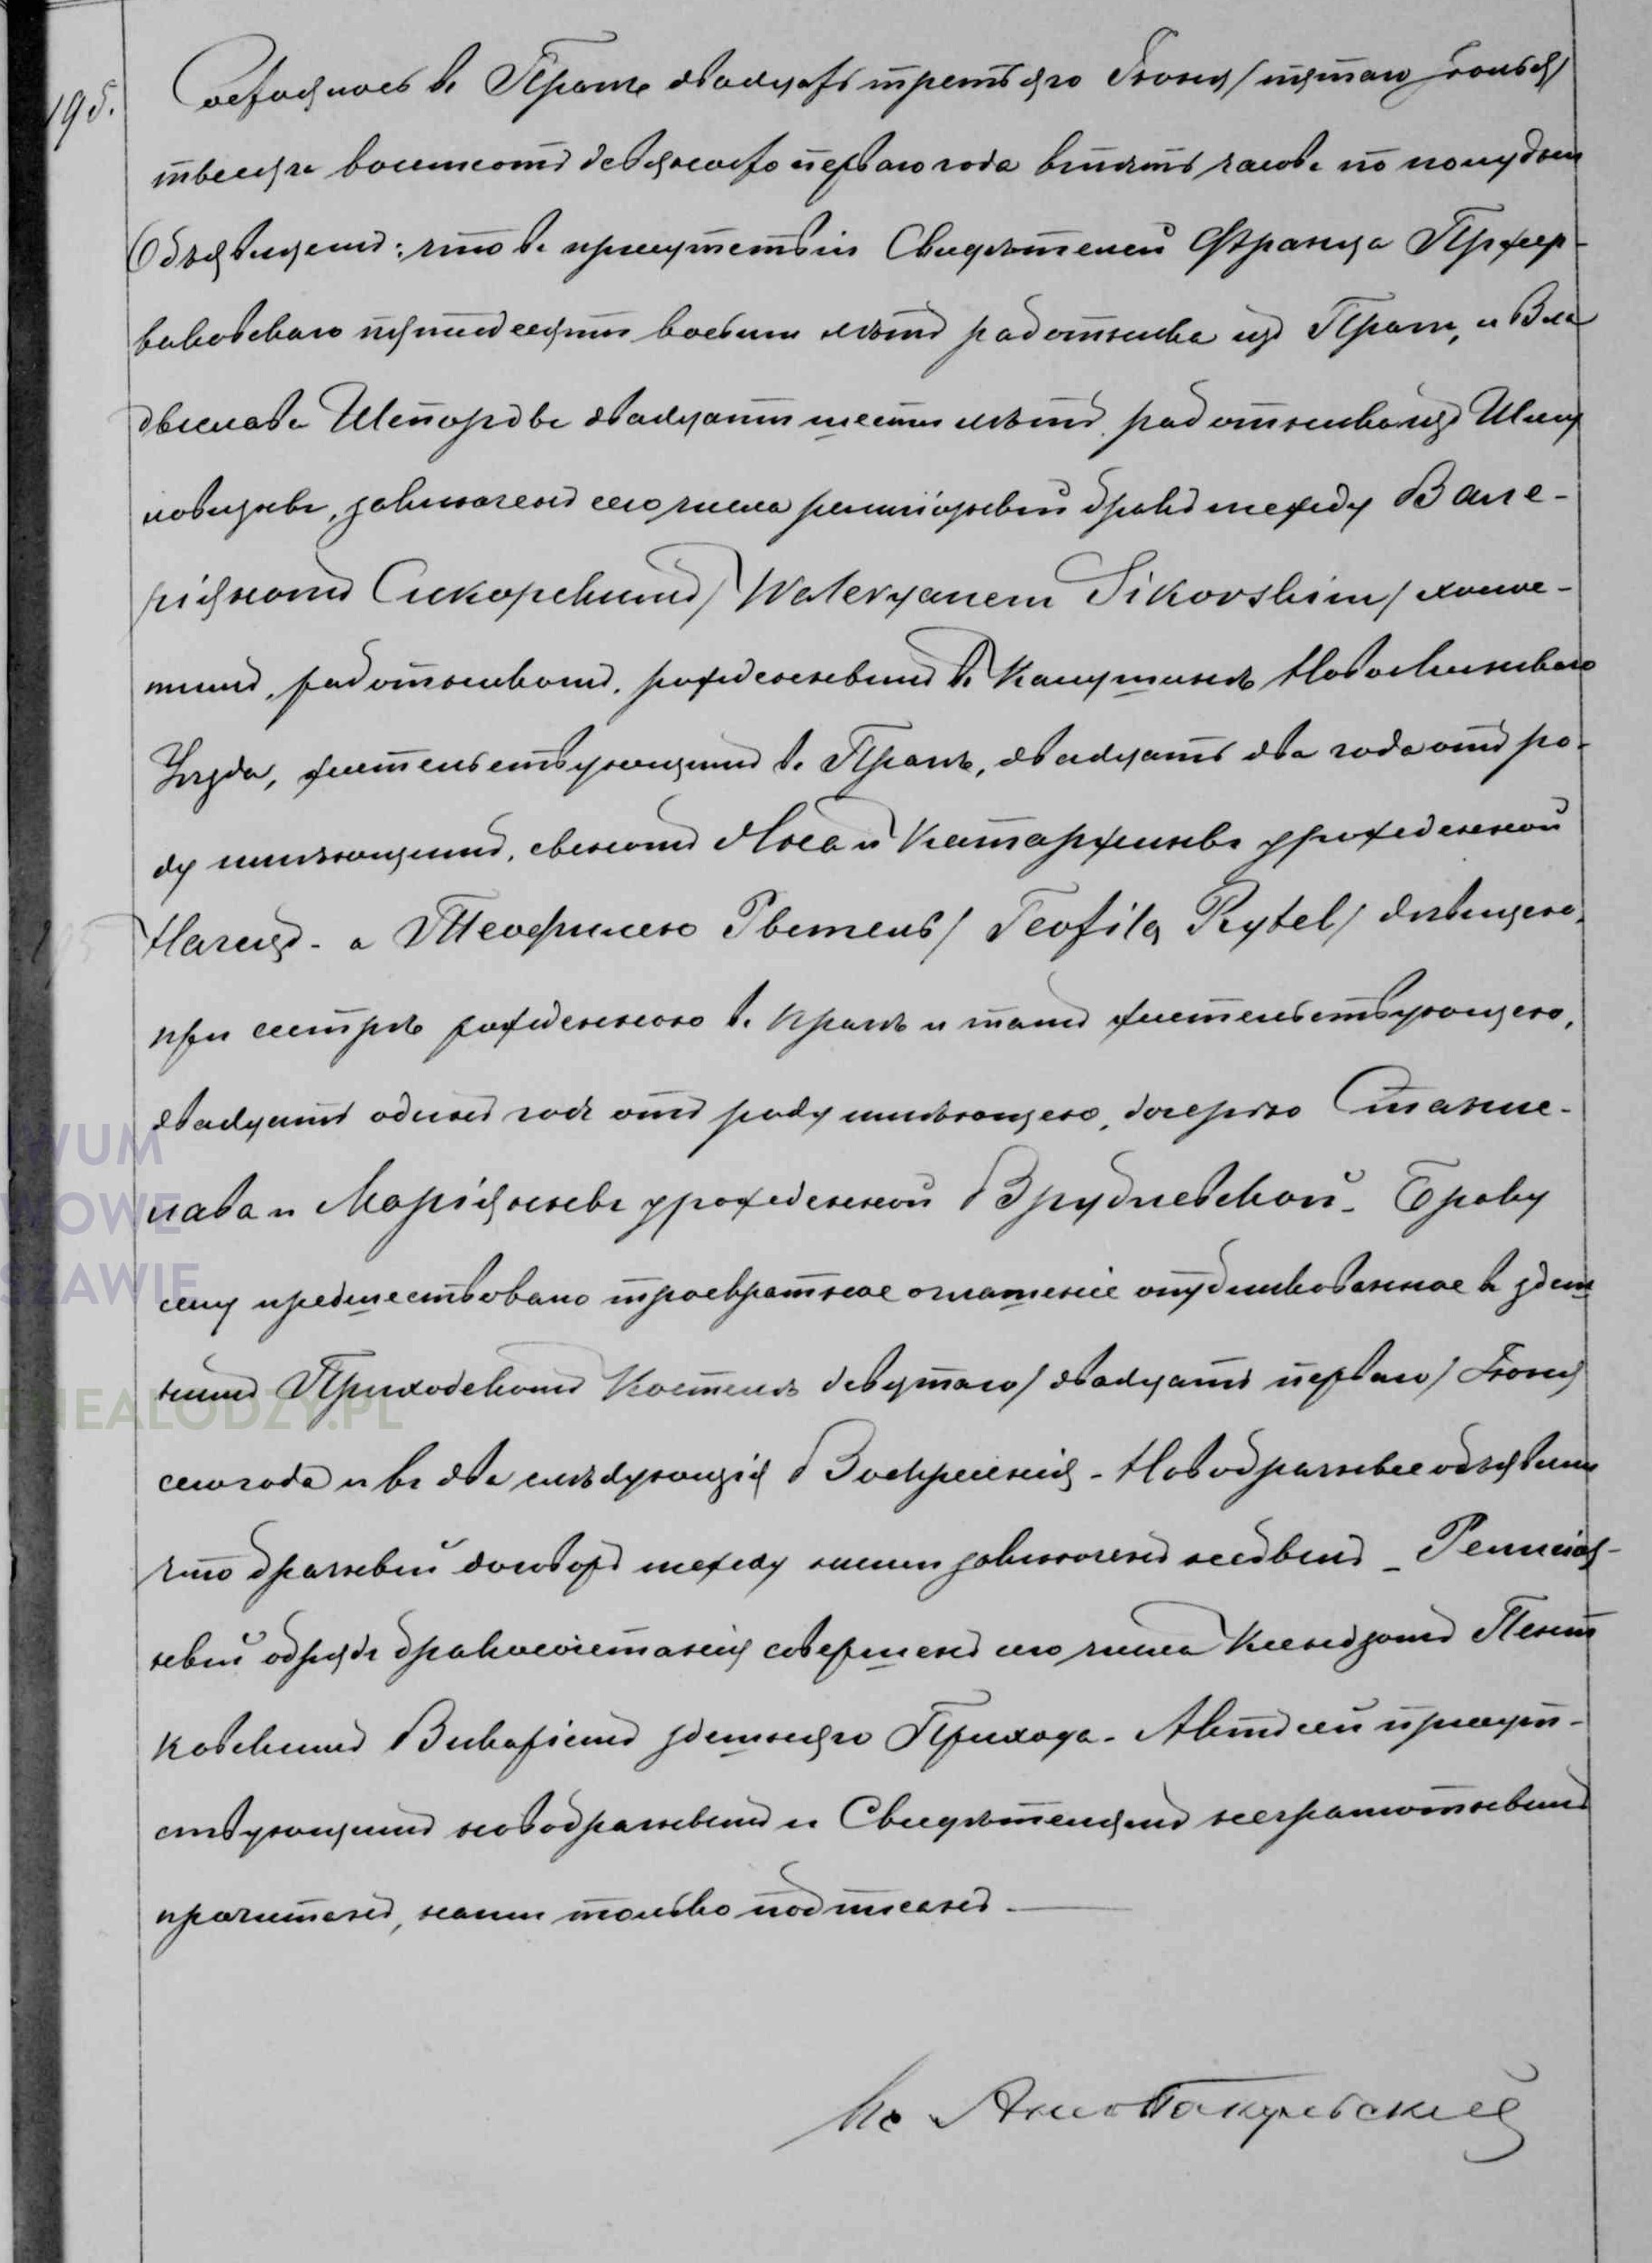 195.
Состоялось въ Прагѣ двадцать третьяго Іюня /пятаго Іюля/
тысяча восемсотъ девяносто перваго года въ пять часовъ по полудни
Объявляемъ: что въ присутствіи Свидѣтелей Франца
пятидесяти восьми лѣтъ работника изъ Праги, и Вла
дыслава двадцати шести лѣтъ, работника изъ Шму
ловизны, заключенъ сего числа религіозный бракъ между Вале-
ріяномъ Сикорскимъ /Waleryanem Sikorskim/ холос-
тымъ, работникомъ, рожденнымъ въ Новоминскаго
Уѣзда, жительствующимъ въ Прагѣ, двадцать два года отъ ро-
ду имѣющимъ, сыномъ и Катаржины урожденной
а Теофилею Рытель /Teofilą Rytel/ дѣвицею,
при сестрѣ рожденною въ Прагѣ и тамъ жительствующею,
двадцать одинъ годъ отъ роду имѣющею, дочерью Станис-
лава и Маріянны урожденной Врублевской. Браку
сему предшествовало троекратное оглашеніе опубликованное въ здѣш
немъ Приходскомъ Костелѣ девятаго /двадцать перваго/ Іюня
сего года и въ два слѣдующія Воскресенія. Новобрачные объявили
что брачный договоръ между ними заключенъ небылъ. Религіоз-
ный обрядъ бракосочетанія совершенъ сего числа Ксендзомъ
Викаріемъ здѣшняго Прихода. Актъ сей присут-
ствующимъ новобрачнымъ и Свидѣтелямъ неграмотнымъ
прочитанъ, нами только подписанъ.